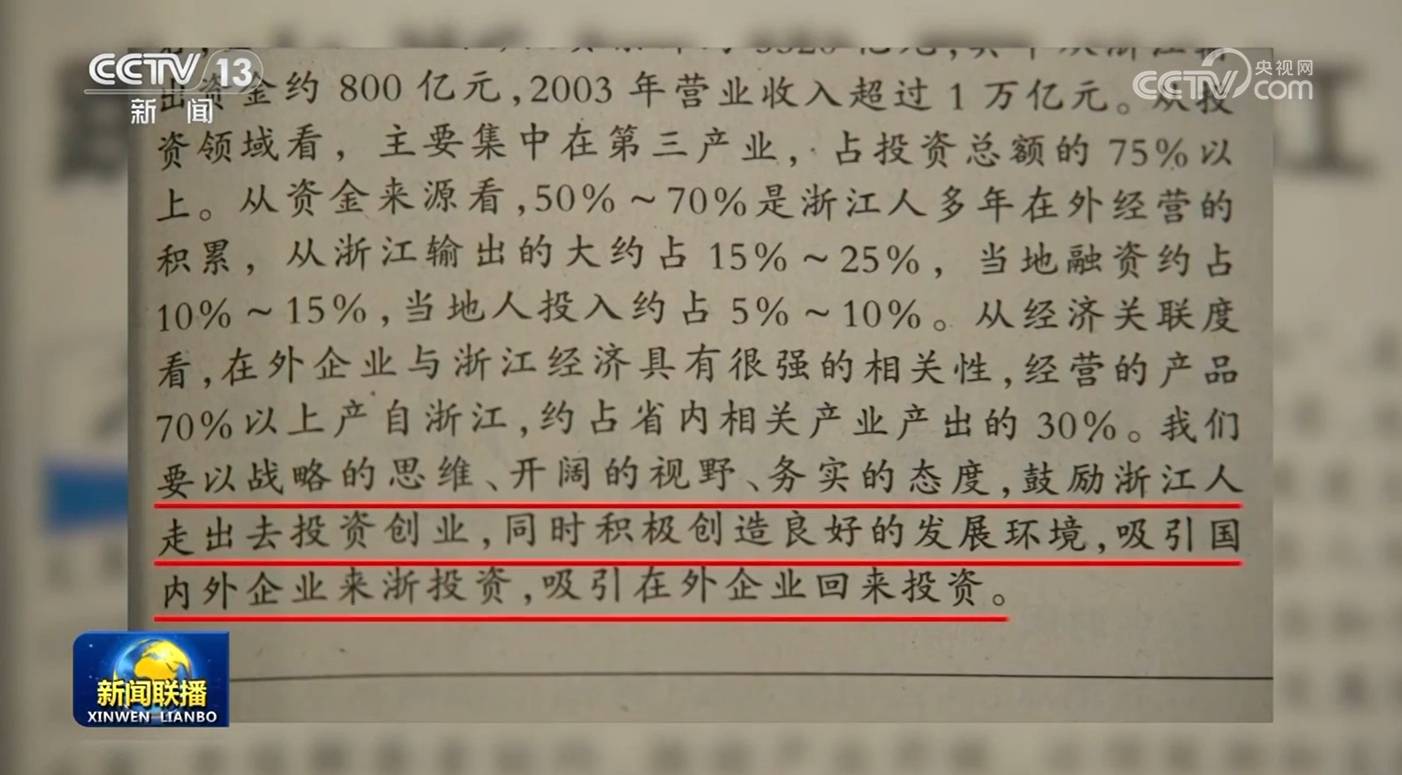 CCTV 13
新闻
CCTV 央视网
com
出资金约 800 亿元,2003 年营业收入超过 1 万亿元。从投
资领域看，主要集中在第三产业，占投资总额的 75%以
上。从资金来源看,50%～70%是浙江人多年在外经营的
积累，从浙江输出的大约占 15%～25%，当地融资约占
10%～15%,当地人投入约占 5%～10%。从经济关联度
看,在外企业与浙江经济具有很强的相关性,经营的产品
70%以上产自浙江,约占省内相关产业产出的 30%。我们
要以战略的思维、开阔的视野、务实的态度,鼓励浙江人
走出去投资创业,同时积极创造良好的发展环境,吸引国
内外企业来浙投资,吸引在外企业回来投资。
新闻联播
XINWEN LIANBO